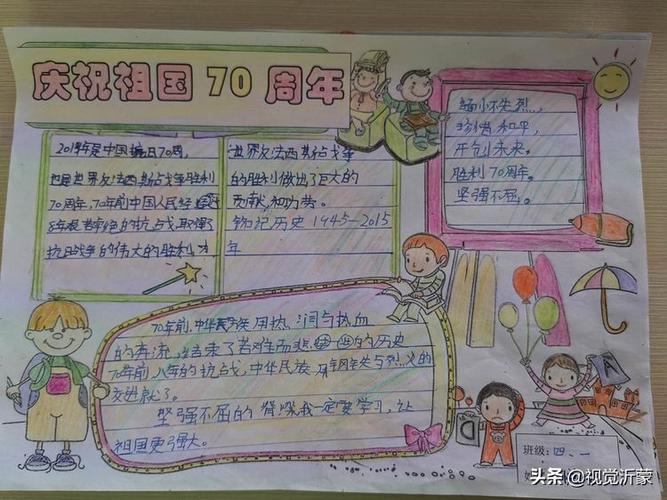 庆祝祖国70周年
2019年是中国抗日70周,
也是世界反法西斯战争胜利
70周年,70年前中国人民经
8年艰苦卓绝的抗战,取得了
抗日战争的伟大的胜利,才
世界反法西斯占战争
的胜利做出了巨大的
贡献,和功劳。
铭记历史1945—2015
年
缅小怀先烈,
珍惜和平,
开创未来。
胜利70周年。
坚强不屈。
70年前,中华民族用热、泪与热血
的奔流,结束了苦难而悲的历史
70年前,八年的抗战,中华民族用钢与烈火的
交进就了。
坚强不屈的脊梁我一定要学习,让
祖国更强大。
班级:四、一
头条@视觉沂蒙